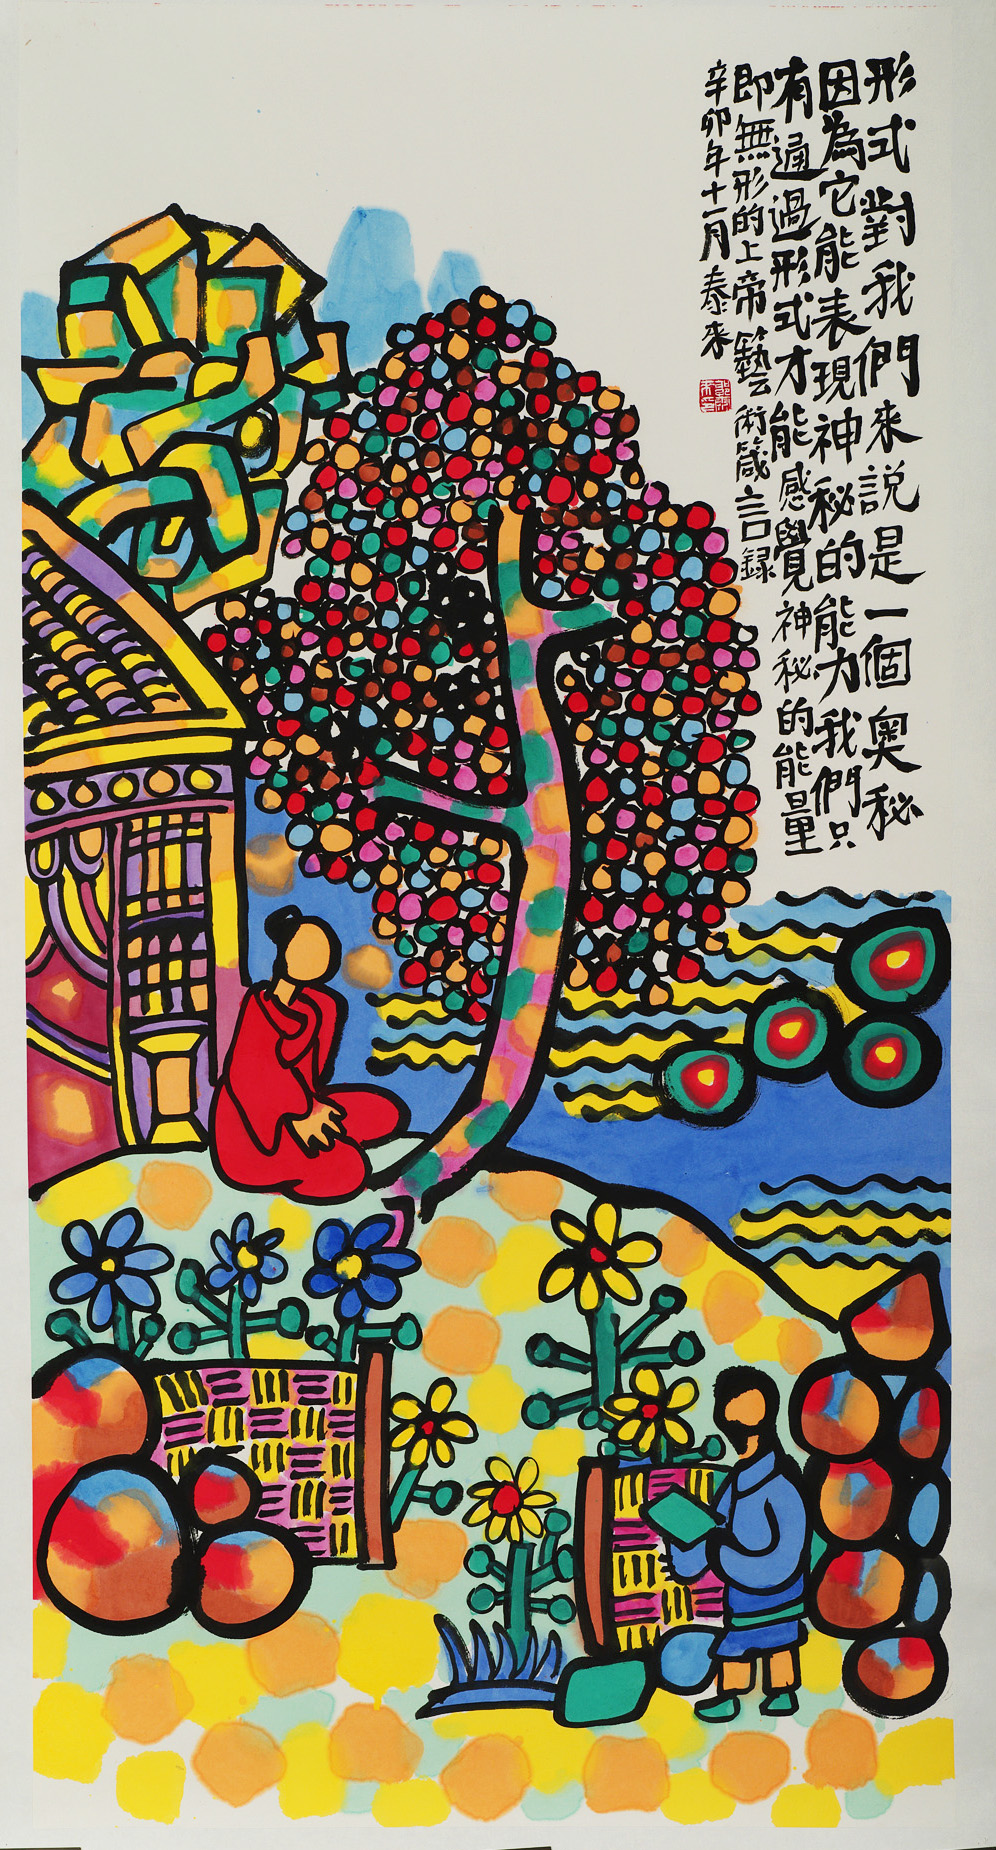 形式對我們來説是一個奧秘
因為它能表現神秘的能力我們只
有通過形式才能感覺神秘的能量
即無形的上帝藝術箴言録
辛卯年十一月泰來